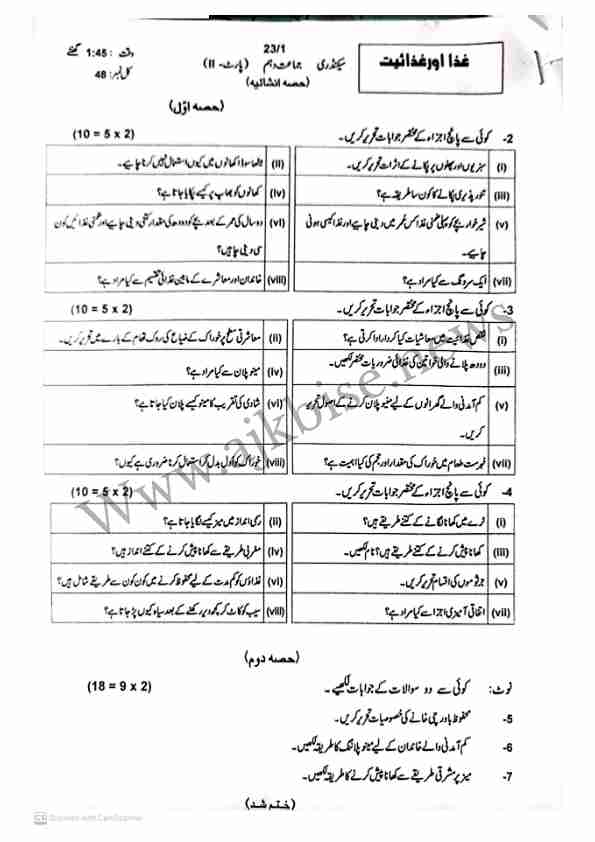 غذا اور غذائیت
23/1
سیکنڈری جماعت دہم (پارٹ-II)
(حصہ انشائیہ)
وقت : 1:45 گھنٹے
کل نمبر: 48
(حصہ اوّل)
2- کوئی سے پانچ اجزاء کے مختصر جوابات تحریر کریں۔ (10 = 5 x 2)
(i) سبزیوں اور پھلوں پر پکانے کے اثرات تحریر کریں۔
(ii) میٹھا سوڈا کھانوں میں کیوں استعمال نہیں کرنا چاہیے۔
(iii) تنور پذیری پکانے کا کون سا طریقہ ہے؟
(iv) کھانوں کو بھاپ پر کیسے پکایا جاتا ہے؟
(v) شیر خوار بچے کو پہلی ضمنی غذا کس عمر میں دینی چاہیے اور غذا کیسی ہونی
چاہیے۔
(vi) دو سال کی عمر کے بعد بچے کو دودھ کی مقدار کتنی دینی چاہیے اور ضمنی غذائیں کون
سی دینی چاہیں؟
(vii) ایک سرونگ سے کیا مراد ہے؟
(viii) خاندان اور معاشرے کے مابین غذائی تقسیم سے کیا مراد ہے؟
3- کوئی سے پانچ اجزاء کے مختصر جوابات تحریر کریں۔ (10 = 5 x 2)
(i) نقص غذائیت میں معاشیات کیا کردار ادا کرتی ہے؟
(ii) معاشرتی سطح پر خوراک کے ضیاع کی روک تھام کے بارے میں تحریر کریں۔
(iii) دودھ پلانے والی خواتین کی غذائی ضروریات مختصر لکھیں۔
(iv) مینو پلان سے کیا مراد ہے؟
(v) کم آمدنی والے گھرانوں کے لیے مینو پلان کرنے کے اصول تحریر
کریں۔
(vi) شادی کی تقریب کا مینو کیسے پلان کیا جاتا ہے؟
(vii) فہرست طعام میں خوراک کی مقدار اور حجم کی کیا اہمیت ہے؟
(viii) خوراک کو ادل بدل کر استعمال کرنا ضروری ہے کیوں؟
4- کوئی سے پانچ اجزاء کے مختصر جوابات تحریر کریں۔ (10 = 5 x 2)
(i) ٹرے میں کھانا لگانے کے کتنے طریقے ہیں؟
(ii) رسمی انداز میں میز کیسے لگایا جاتا ہے؟
(iii) کھانا پیش کرنے کے کتنے طریقے ہیں؟ نام لکھیں۔
(iv) مغربی طریقے سے کھانا پیش کرنے کے کتنے انداز ہیں؟
(v) جرثوموں کی اقسام تحریر کریں۔
(vi) غذاؤں کو کم مدت کے لیے محفوظ کرنے میں کون کون سے طریقے شامل ہیں؟
(vii) اتفاقی آمیزی اجزا سے کیا مراد ہے؟
(viii) سیب کو کاٹ کر کچھ دیر رکھنے کے بعد سیاہ کیوں پڑ جاتا ہے؟
(حصہ دوم)
نوٹ: کوئی سے دو سوالات کے جوابات لکھیے۔ (18 = 9 x 2)
5- محفوظ باورچی خانے کی خصوصیات تحریر کریں۔
6- کم آمدنی والے خاندان کے لیے مینو پلاننگ کا طریقہ لکھیں۔
7- میز پر مشرقی طریقے سے کھانا پیش کرنے کا طریقہ لکھیں۔
(ختم شد)
www.ajkbise.news
CS Scanned with CamScanner